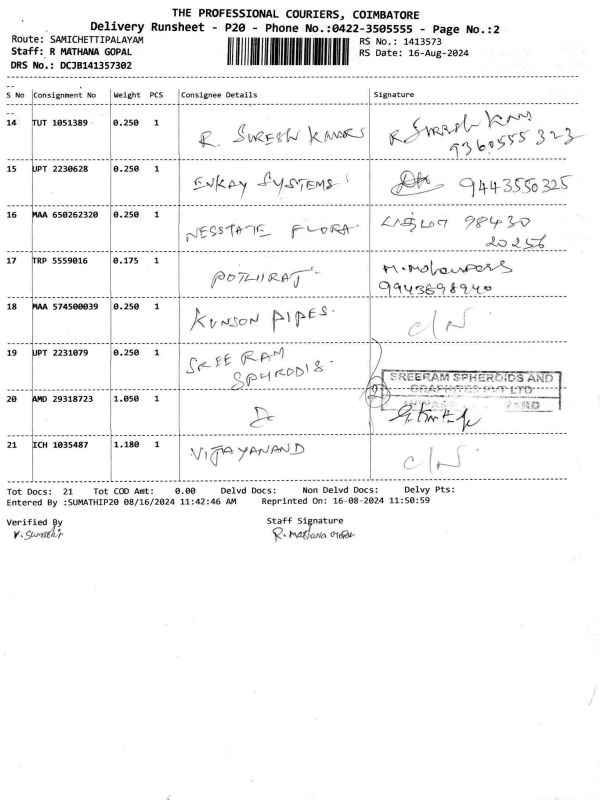 THE PROFESSIONAL COURIERS, COIMBATORE
Delivery Runsheet - P20 - Phone No.:0422-3505555 - Page No.:2
Route: SAMICHETTIPALAYAM RS No.: 1413573
Staff: R MATHANA GOPAL RS Date: 16-Aug-2024
DRS No.: DCJB141357302
S No Consignment No Weight PCS Consignee Details Signature
14 TUT 1051389 0.250 1 R. SURESH KUMAR R. Suresh Kum
9360555323
15 UPT 2230628 0.250 1 ENKAY SYSTEMS 9443550325
16 MAA 650262320 0.250 1 NESSTATE FLORA 98430
20256
17 TRP 5559016 0.175 1 POTHIRAJ M. Mohanraj
9943898940
18 MAA 574500039 0.250 1 KUNSON PIPES. C/N
19 UPT 2231079 0.250 1 SREE RAM
SPHRODIS
SREERAM SPHEROIDS AND
GRAPHITES PVT LTD
20 AMD 29318723 1.050 1 2
21 ICH 1035487 1.180 1 VIJAYANAND C/N
Tot Docs: 21 Tot COD Amt: 0.00 Delvd Docs: Non Delvd Docs: Delvy Pts:
Entered By :SUMATHIP20 08/16/2024 11:42:46 AM Reprinted On: 16-08-2024 11:50:59
Verified By Staff Signature
V. Sumathi R. Mathana Gopal